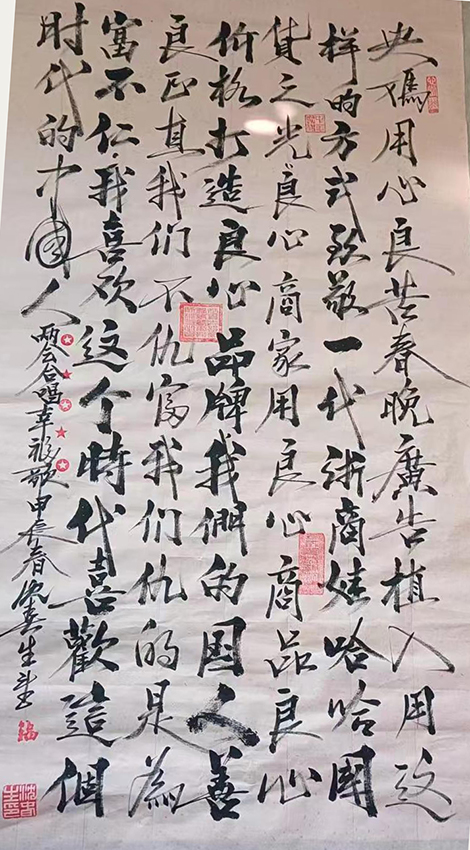 央媽用心良苦春晚廣告植入用这
样的方式致敬一代浙商娃哈哈國
货之光良心商家用良心商品良心
价格打造良心品牌我們的国人善
良正直我们不仇富我们仇的是為
富不仁我喜欢这个時代喜歡這個
时代的中國人
两会合唱幸福歌甲辰春喜生